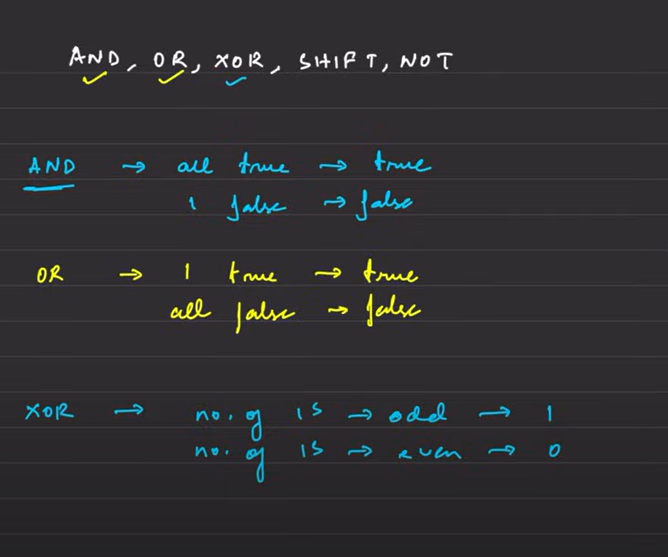 AND, OR, XOR, SHIFT, NOT
AND → all true → true
1 false → false
OR → 1 true → true
all false → false
XOR → no. of 1s → odd → 1
no. of 1s → even → 0